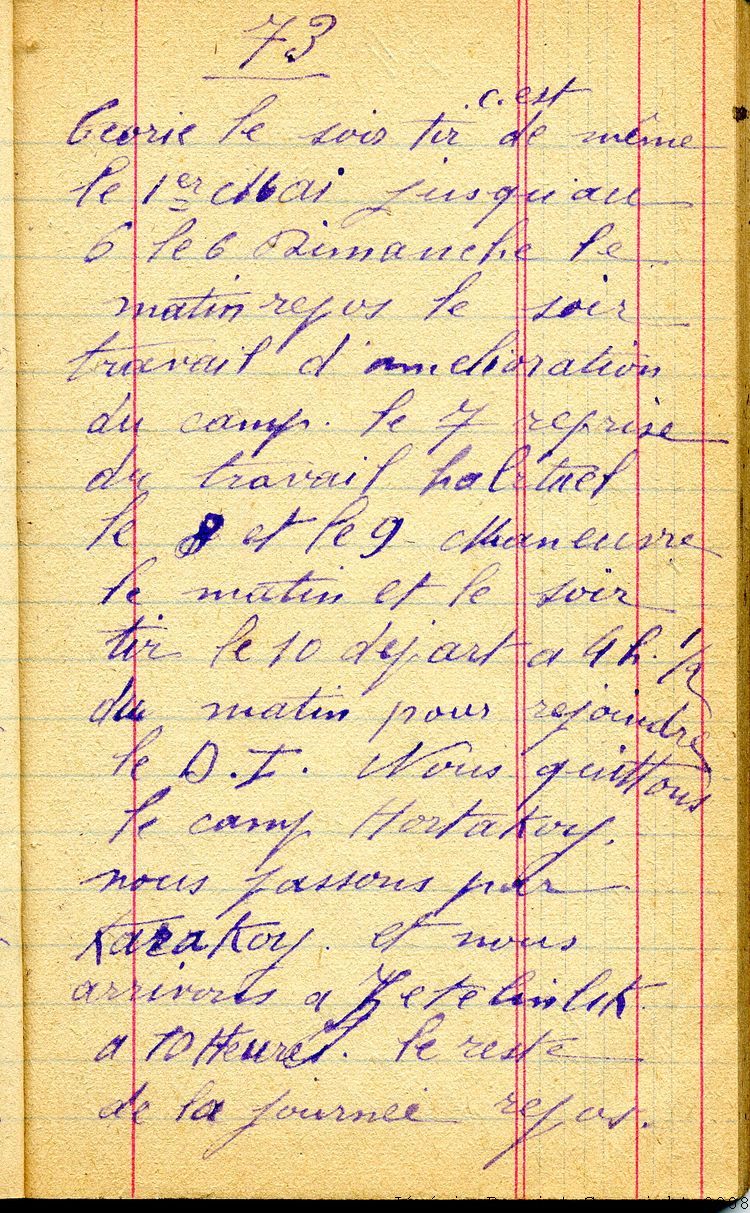 73
c. est
teorie le soir tir de même
le 1er Mai jusqu'au
6 le 6 Dimanche le
matin repos le soir
travail d'amelioration
du camp. le 7 reprise
du travail habituel
le 8 et le 9 Maneuvre
le matin et le soir
tir le 10 depart a 4 h. 1/2
du matin pour rejoindre
le D.I. Nous quittons
le camp Hortakoy.
nous passons par
Karakoy. et nous
arrivons a Zetelinlik
a 10 Heures. le reste
de la journeé repos.